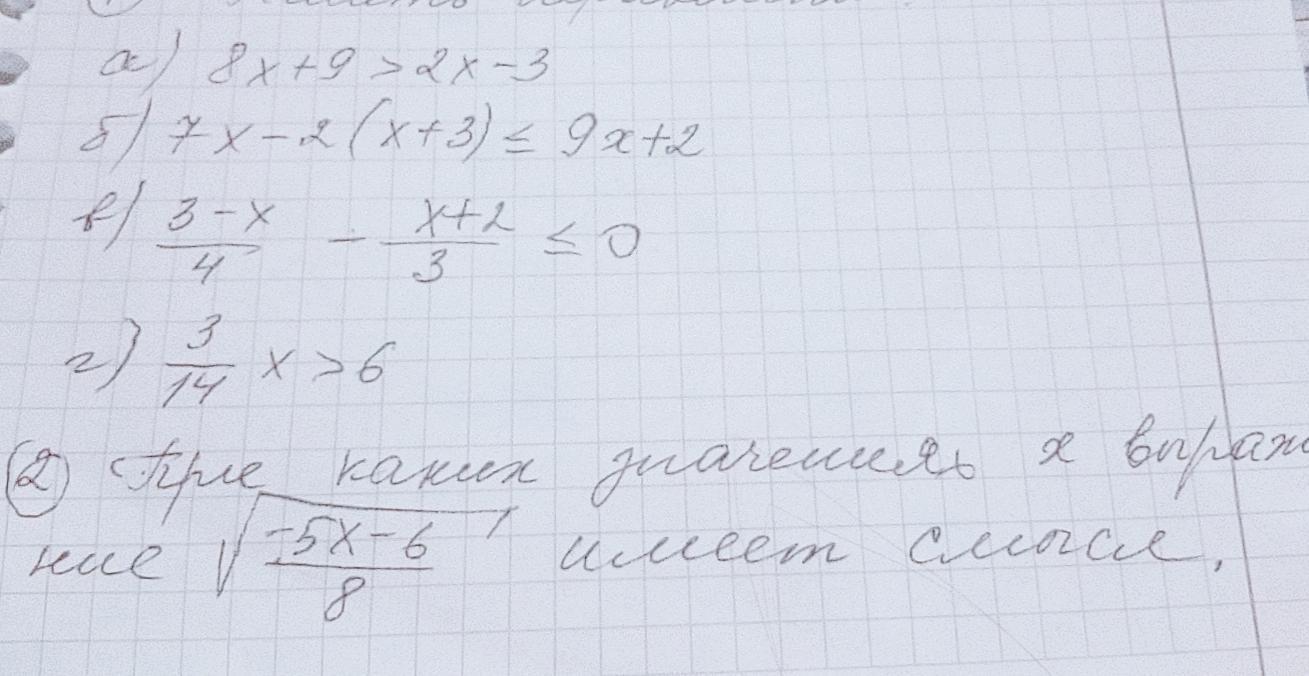 а) 8x+9>2x-3
б) 7x-2(x+3)≤9x+2
в) (3-x)/4 - (x+2)/3 ≤ 0
г) 3/14 x > 6
② При каких значениях x выраже
ние √((-5x-6)/8) имеет смысл.